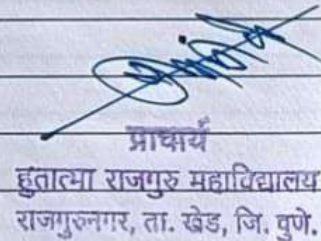 प्राचार्य
हुतात्मा राजगुरु महाविद्यालय
राजगुरुनगर, ता. खेड, जि. पुणे.